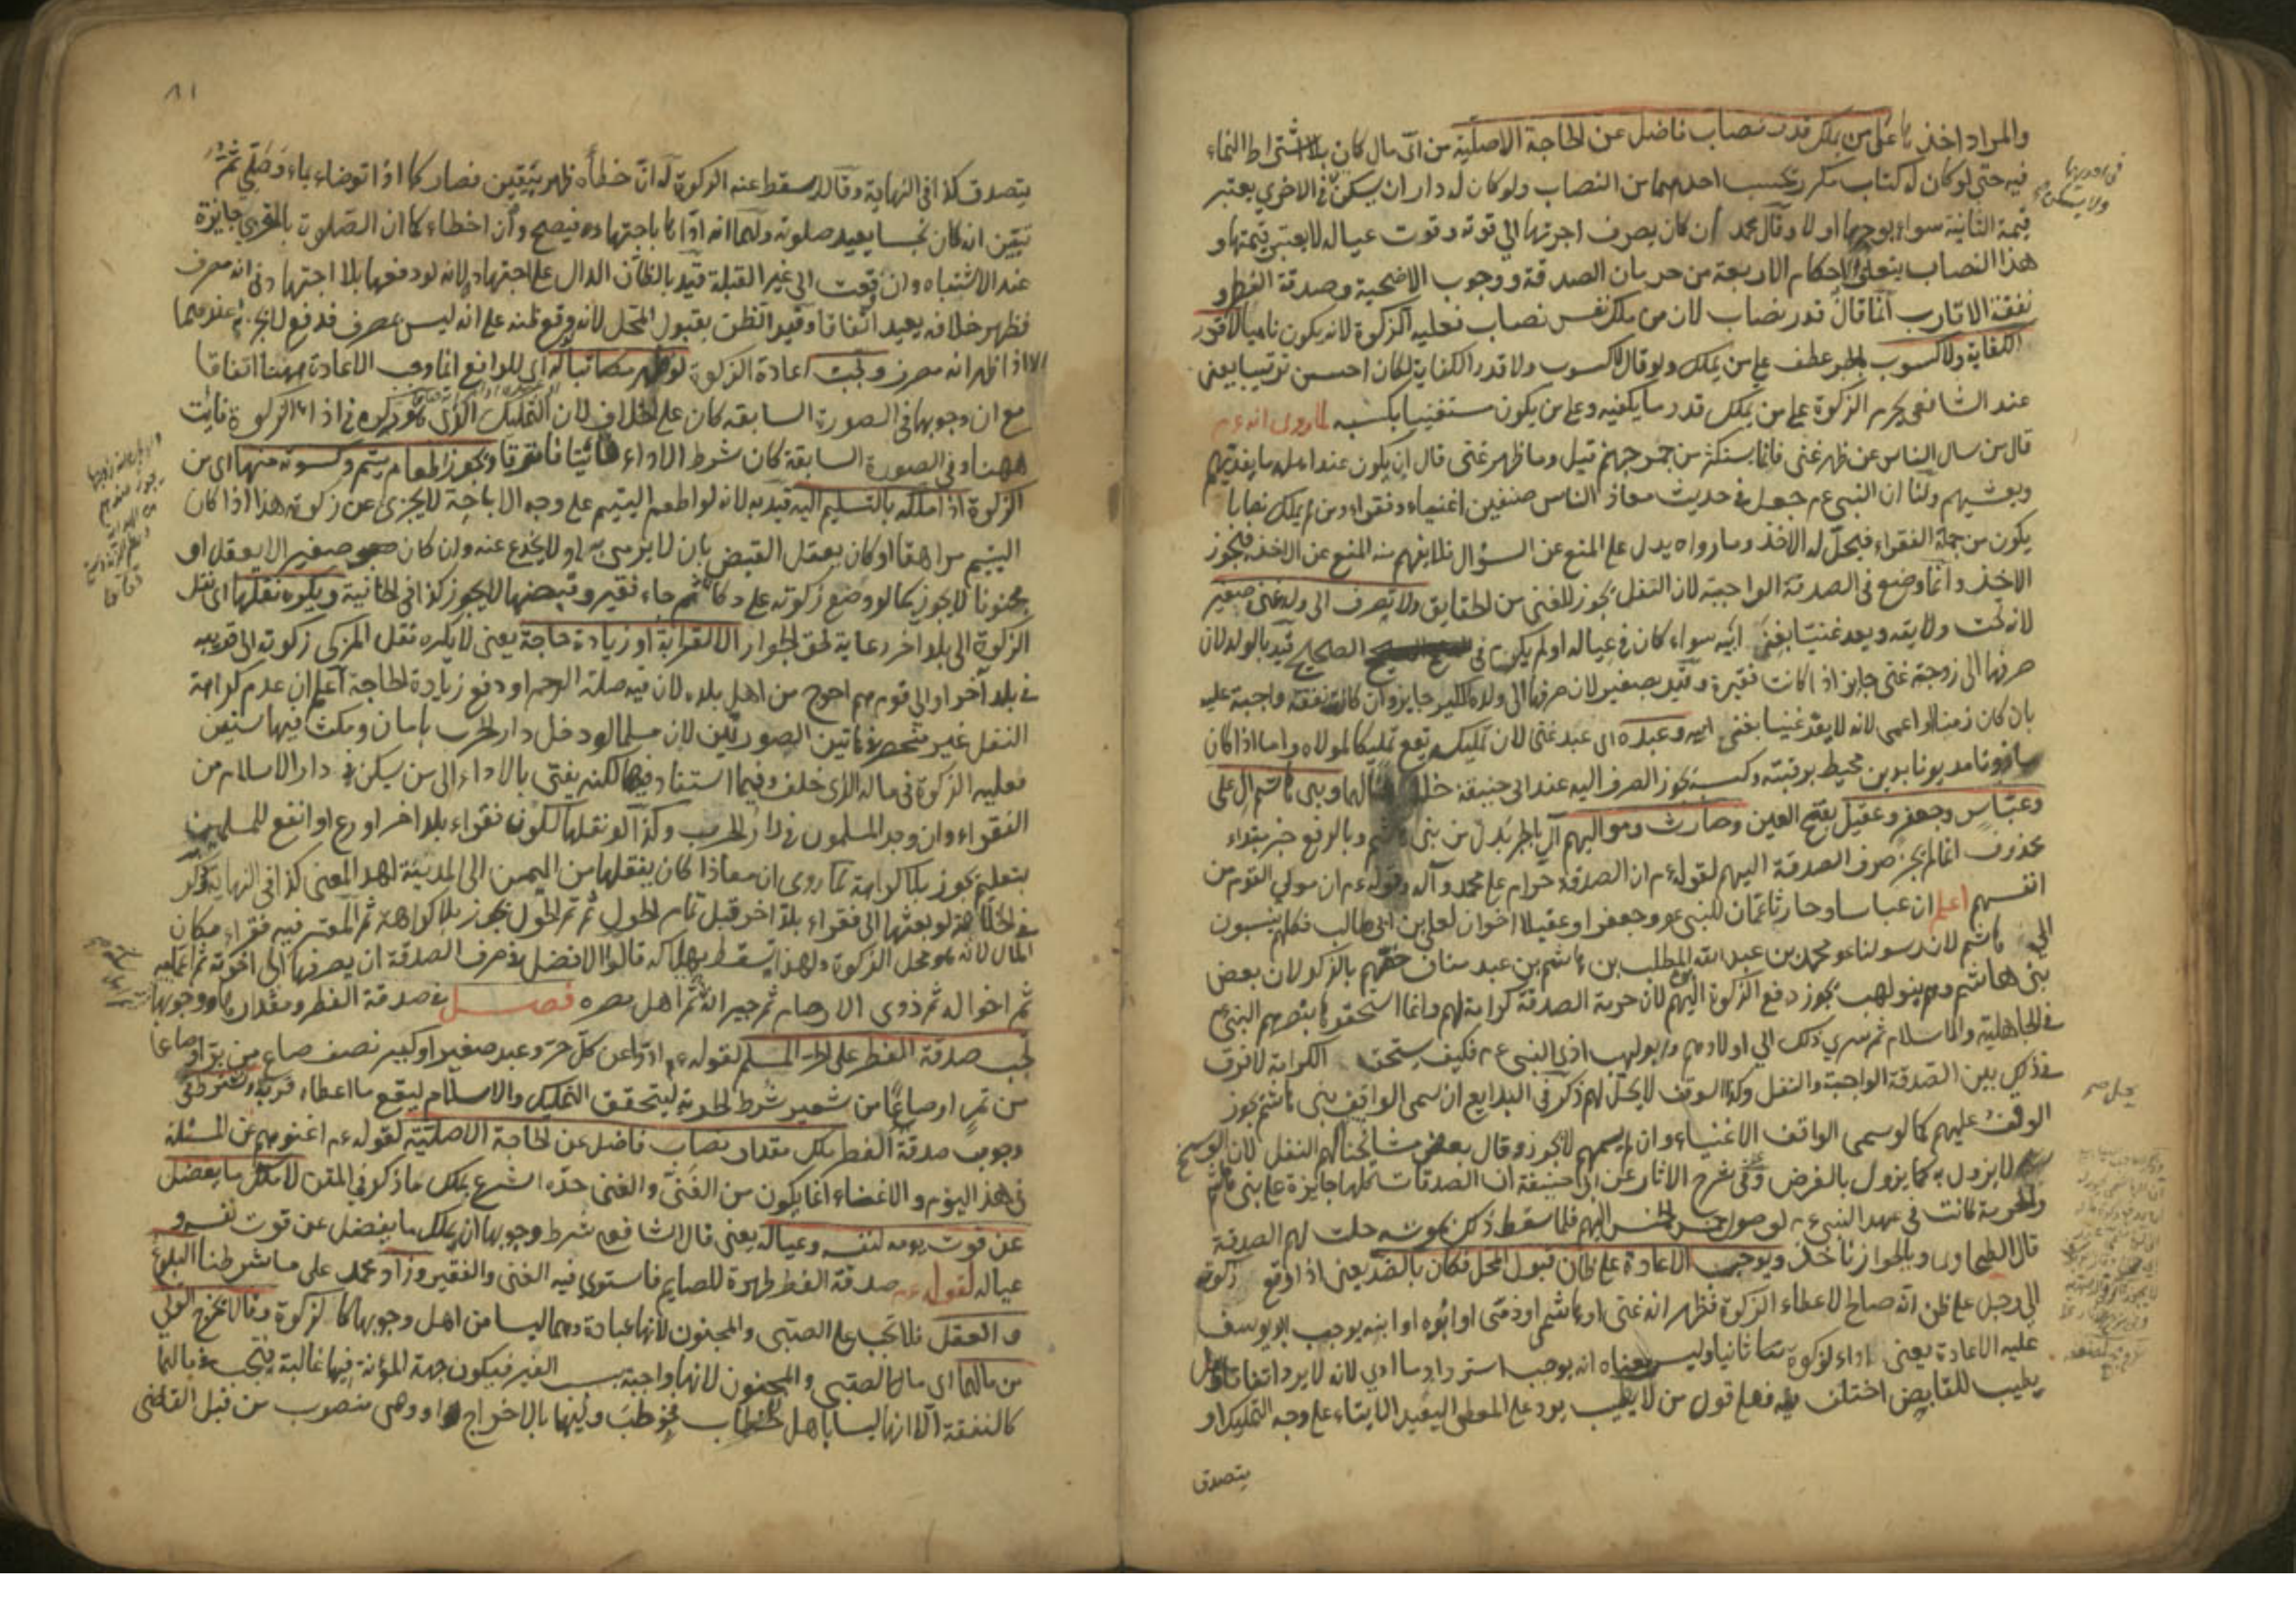 والمراد اخذ ما على من يملك قدر نصاب فاضل عن الحاجة الاصلية من اى مال كان بلا اشتراط النماء
فيه حتى لو كان له كتاب مكرر يحسب احدهما من النصاب ولو كان له داران يسكن فى الاخرى يعتبر
قيمة الثانية سواء يوجرها او لا وقال محمد ان كان يصرف اجرتها الى قوته وقوت عياله لا يعتبر قيمتها و
هذا النصاب يتعلق به الاحكام الاربعة من حرمان الصدقة ووجوب الاضحية وصدقة الفطر و
نفقة الاقارب انما قال قدر نصاب لان من ملك نفس نصاب فعليه الزكوة لانه يكون ناميا لا قدر
الكفاية ولا كسوب بالجر عطف على من يملك ولو قال لا كسوب ولا قدر الكفاية لكان احسن ترتيبا يعنى
عند الشافعى يحرم الزكوة على من يملك قدر ما يكفيه وعلى من يكون مستغنيا بكسبه لما روى انه عم
قال من سال الناس عن ظهر غنى فانما يستكثر من جمر جهنم قيل وما ظهر غنى قال ان يكون عند اهله ما يغديهم
ويعشيهم ولنا ان النبى عم جعل فى حديث معاذ الناس صنفين اغنياء وفقراء ومن لم يملك نصابا
يكون من جملة الفقراء فيحل له الاخذ وما رواه يدل على المنع عن السؤال فلا يفهم منه المنع عن الاخذ فيجوز
الاخذ وانما وضع فى الصدقة الواجبة لان النفل يجوز للغنى من الحقايق ولا تصرف الى ولد غنى صغير
لانه تحت ولايته ويعد غنيا بغنى ابيه سواء كان فى عياله او لم يكن فى الصحيح قيد بالولد لان
صرفها الى زوجة غنى جايز اذا كانت فقيرة وقيد بصغير لان صرفها الى ولده الكبير جايز وان كانت نفقته واجبة عليه
بان كان زمنا او اعمى لانه لا يعد غنيا بغنى ابيه وعبده اى عبد غنى لان تمليكه يقع تمليكا لمولاه واما اذا كان
ماذونا مديونا بدين محيط برقبته وكسبه يجوز الصرف اليه عند ابى حنيفة خلافا لهما وبنى هاشم ال على
وعباس وجعفر وعقيل بفتح العين وحارث ومواليهم آل بالجر بدل من بنى هاشم وبالرفع خبر مبتداء
محذوف انما لم يجز صرف الصدقة اليهم لقوله عم ان الصدقة حرام على محمد وآله وقوله عم ان مولى القوم من
انفسهم اعلم ان عباسا وحارثا عمان للنبى عم وجعفرا وعقيلا اخوان لعلى بن ابى طالب فكلهم ينسبون
الى هاشم لان رسولنا هو محمد بن عبد الله بن عبد المطلب بن هاشم بن عبد مناف خصهم بالذكر لان بعض
بنى هاشم وهم بنو لهب يجوز دفع الزكوة اليهم لان حرمة الصدقة كرامة لهم وانما استحقوها بنصرهم النبى عم
فى الجاهلية والاسلام ثم سرى ذلك الى اولادهم وابو لهب اذى النبى عم فكيف يستحق الكرامة لا فرق
فى ذلك بين الصدقة الواجبة والنفل وكذا الوقف لا يحل لهم ذكر فى البدايع ان سمى الواقف بنى هاشم يجوز
الوقف عليهم كما لو سمى الواقف الاغنياء وان لم يسمهم لا يجوز وقال بعض مشايخنا لهم النفل لان الوسخ
لا يزول به كما يزول بالفرض وفى شرح الاثار عن ابى حنيفة ان الصدقات كلها جايزة على بنى هاشم
والحرمة كانت فى عهد النبى عم لوصول خمس الخمس اليهم فلما سقط ذلك بموته حلت لهم الصدقة
قال الطحاوى وبالجواز ناخذ ويوجب الاعادة على ظان قبول المحل فكان بالضد يعنى اذا وقع زكوته
الى رجل على ظن انه صالح لاعطاء الزكوة فظهر انه غنى او هاشمى او ذمى او ابوه او ابنه يوجب ابو يوسف
عليه الاعادة يعنى اداء الزكوة ثانيا وليس معناه انه يوجب استرداد ما ادى لانه لا يرد اتفاقا وهل
يطيب للقابض اختلف فيه فعلى قول من لا يطيب يرد على المعطى اليفيد الايتاء على وجه التمليك او
يتصدق
٨١
يتصدق كذا فى النهاية وقالا سقط عنه الزكوة له ان خطأه ظهر بيقين فصار كما اذا توضاء بماء وصلى ثم
تيقن انه كان نجسا يعيد صلوته ولهما انه اداها باجتهاده فيصح وان اخطاء كما ان الصلوة بالتحرى جايزة
عند الاشتباه وان وقعت الى غير القبلة قيد بالظان الدال على اجتهاد لانه لو دفعها بلا اجتهاد فى انه مصرف
فظهر خلافه يعيد اتفاقا وقيد الظن بقبول المحل لانه لو وقع ظنه على انه ليس بمصرف فدفع لا يجزيه عندهما
الا اذا ظهر انه مصرف وتجب اعادة الزكوة لو ظهر مكاتبا له اى للدافع انما وجب الاعادة ههنا اتفاقا
مع ان وجوبها فى الصورة السابقة كان على الخلاف لان التمليك الذى هو ركن فى اداء الزكوة فايت
ههنا وفى الصورة السابقة كان شرط الاداء فائتا فافترقا ويجوز اطعام يتيم وكسوته منها اى من
الزكوة اذا ملكه بالتسليم اليه قيد به لانه لو اطعم اليتيم على وجه الاباحة لا يجزى عن زكوته هذا اذا كان
اليتيم مراهقا او كان يعقل القبض بان لا يرمى به ولا يخدع عنه وان كان صغيرا لا يعقل او
مجنونا لا يجوز كما لو وضع زكوته على دكان ثم جاء فقير وقبضها لا يجوز كذا فى الخانية ويكره نقلها اى نقل
الزكوة الى بلد اخر رعاية لحق الجوار الا لقرابة او زيادة حاجة يعنى لا يكره نقل المزكى زكوته الى قريبه
فى بلد آخر او الى قوم هم احوج من اهل بلده لان فيه صلة الرحم او دفع زيادة الحاجة اعلم ان عدم كراهة
النقل غير منحصر فى هاتين الصورتين لان مسلما لو دخل دار الحرب بامان ومكث فيها سنين
فعليه الزكوة فى ماله الذى خلف وفيما استفاد فيها لكنه يفتى بالاداء الى من يسكن فى دار الاسلام من
الفقراء وان وجد المسلمون فى دار الحرب وكذا لو نقلها لكون فقراء بلد اخر اورع او انفع للمسلمين
بتعليم يجوز بلا كراهة لما روى ان معاذا كان ينقلها من اليمن الى المدينة لهذا المعنى كذا فى النهاية وذكر
فى الخلاصة لو بعثها الى فقراء بلد اخر قبل تمام الحول ثم تم الحول يجوز بلا كراهة ثم المعتبر فيه فقراء مكان
المال لانه هو محل الزكوة ولهذا يسقط بهلاكه قالوا الافضل فى صرف الصدقة ان يصرفها الى اخوته ثم اعمامه
ثم اخواله ثم ذوى الارحام ثم جيرانه ثم اهل مصره فصل فى صدقة الفطر ومقدارها ووجوبها
تجب صدقة الفطر على الحر المسلم لقوله عم ادوا عن كل حر وعبد صغير او كبير نصف صاع من بر او صاعا
من تمر او صاعا من شعير شرط الحرية ليتحقق التمليك والاسلام ليقع ما اعطاه قربة ويشترط فى
وجوب صدقة الفطر ملك مقدار نصاب فاضل عن الحاجة الاصلية لقوله عم اغنوهم عن المسئلة
فى هذا اليوم والاغناء انما يكون من الغنى والغنى حده الشرع بملك ما ذكر فى المتن لا ملك ما يفضل
عن قوت يومه لنفسه وعياله يعنى قال الشافعى شرط وجوبها ان يملك ما يفضل عن قوت نفسه و
عياله لقوله عم صدقة الفطر طهرة للصايم فاستوى فيه الغنى والفقير وزاد محمد على ما شرطنا البلوغ
والعقل فلا تجب على الصبى والمجنون لانها عبادة وهما ليسا من اهل وجوبها كالزكوة وقالا يخرج الولى
من مالهما اى مال الصبى والمجنون لانها واجبة بسبب الغير فيكون جهة المؤنة فيها غالبة فتجب فى مالهما
كالنفقة الا انهما ليسا باهل لخطاب فخوطب وليهما بالاخراج او وصى منصوب من قبل القاضى